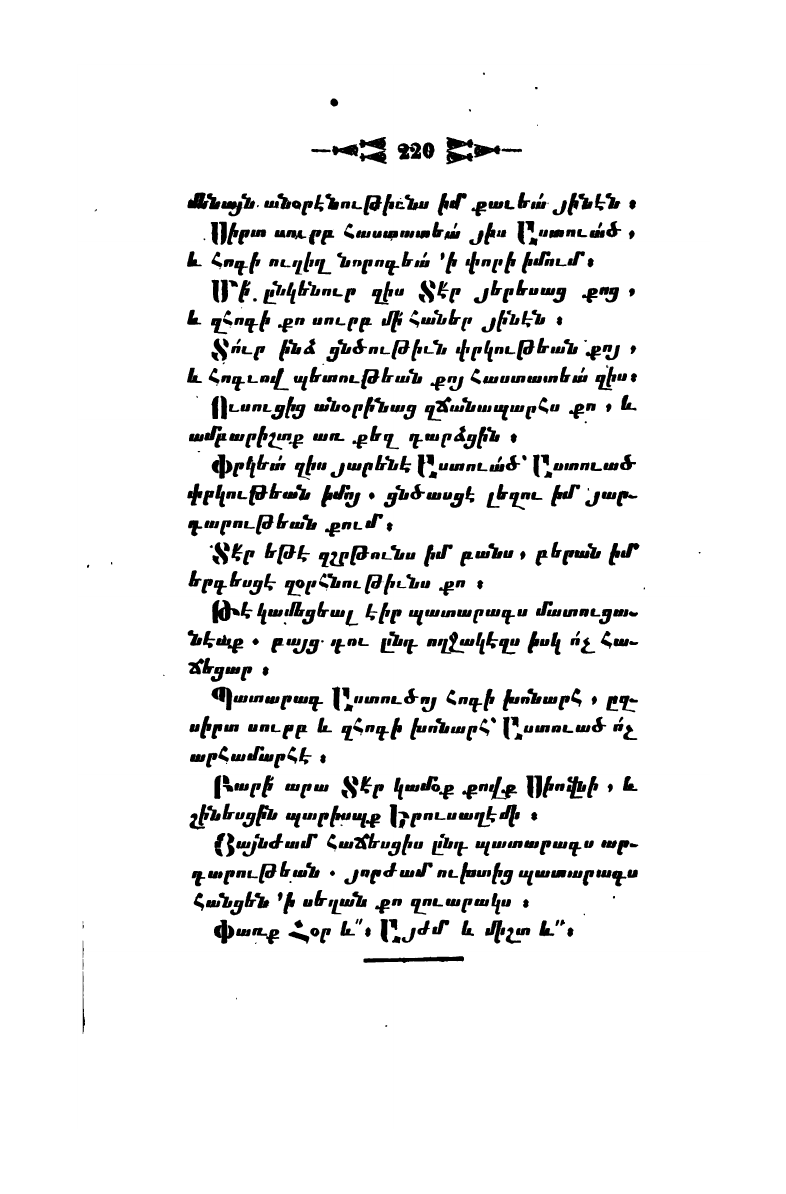 220
մենայն անօրէնութիւնս իմ քաւեա՛ յինէն ։
Սիրտ սուրբ հաստատեա՛ յիս Աստուա՛ծ ,
և հոգի ուղիղ նորոգեա՛ ՚ի փորի իմում ։
Մի՛ ընկենուր զիս Տէր յերեսաց քոց ,
և զհոգի քո սուրբ մի՛ հաներ յինէն ։
Տո՛ւր ինձ ցնծութիւն փրկութեան քոյ ,
և հոգւով պետութեան քոյ հաստատեա՛ զիս ։
Ուսուցից անօրինաց զճանապարհս քո , և
ամբարիշտք առ քեզ դարձցին ։
Փրկեա՛ զիս յարենէ Աստուած՝ Աստուած
փրկութեան իմոյ . ցնծասցէ լեզու իմ յար-
դարութեան քում ։
Տէր եթէ զշրթունս իմ բանս , բերան իմ
երգեսցէ զօրհնութիւնս քո ։
Թէ կամեցեալ էիր պատարագս մատուցա-
նէաք . բայց դու ընդ ողջակէզս իսկ ո՛չ հա-
ճեցար ։
Պատարագ Աստուծոյ հոգի խոնարհ , ըզ-
սիրտ սուրբ և զհոգի խոնարհ՝ Աստուած ո՛չ
արհամարհէ ։
Բարի՛ արա Տէր կամօք քովք Սիովնի , և
շինեսցին պարիսպք Երուսաղէմի ։
Յայնժամ հաճեսցիս ընդ պատարագս ար-
դարութեան . յորժամ ուխտից պատարագս
հանցեն ՚ի սեղան քո զուարակս ։
Փառք Հօր և՛՛ ։ Այժմ և միշտ և՛՛ ։